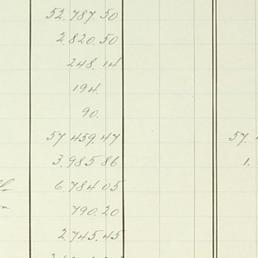 52.787.50
2.820.50
248.14
194.
90.
57.459.47 57.
3.985.86 1.
6.784.05
790.20
2.745.45